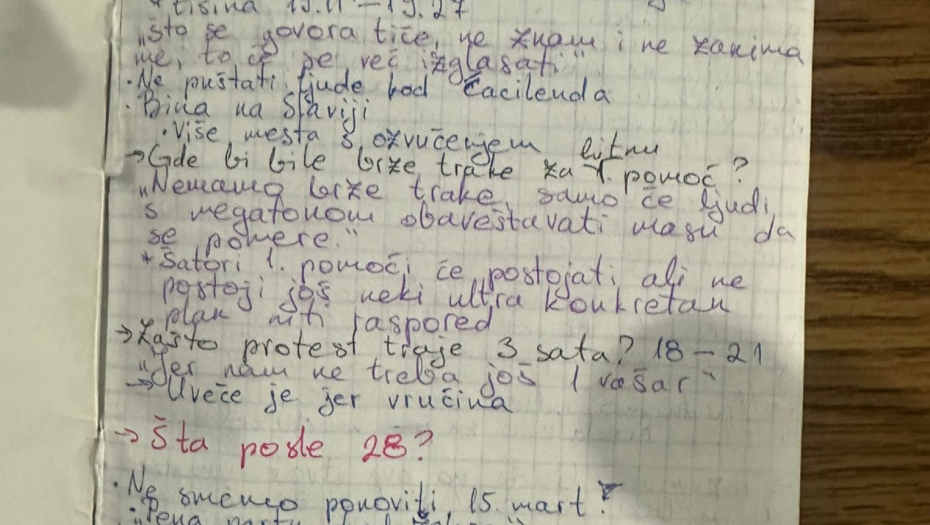 * tišina 19.11 – 19.27
„što se govora tiče, ne znam i ne zanima
me, to će se već izglasati"
• Ne puštati ljude kod Ćacilenda
• Bina na Slaviji
• Više mesta s ozvučenjem
→ Gde bi bile brze trake za hitnu 1. pomoć?
„Nemamo brze trake, samo će ljudi
s megafonom obaveštavati masu da
se pomere."
* Šatori 1. pomoći će postojati, ali ne
postoji još neki ultra konkretan
plan niti raspored
→ Zašto protest traje 3 sata? 18 – 21
„Jer nam ne treba još 1 vašar"
→ Uveče je jer vrućina
→ Šta posle 28?
• Ne smemo ponoviti 15. mart!